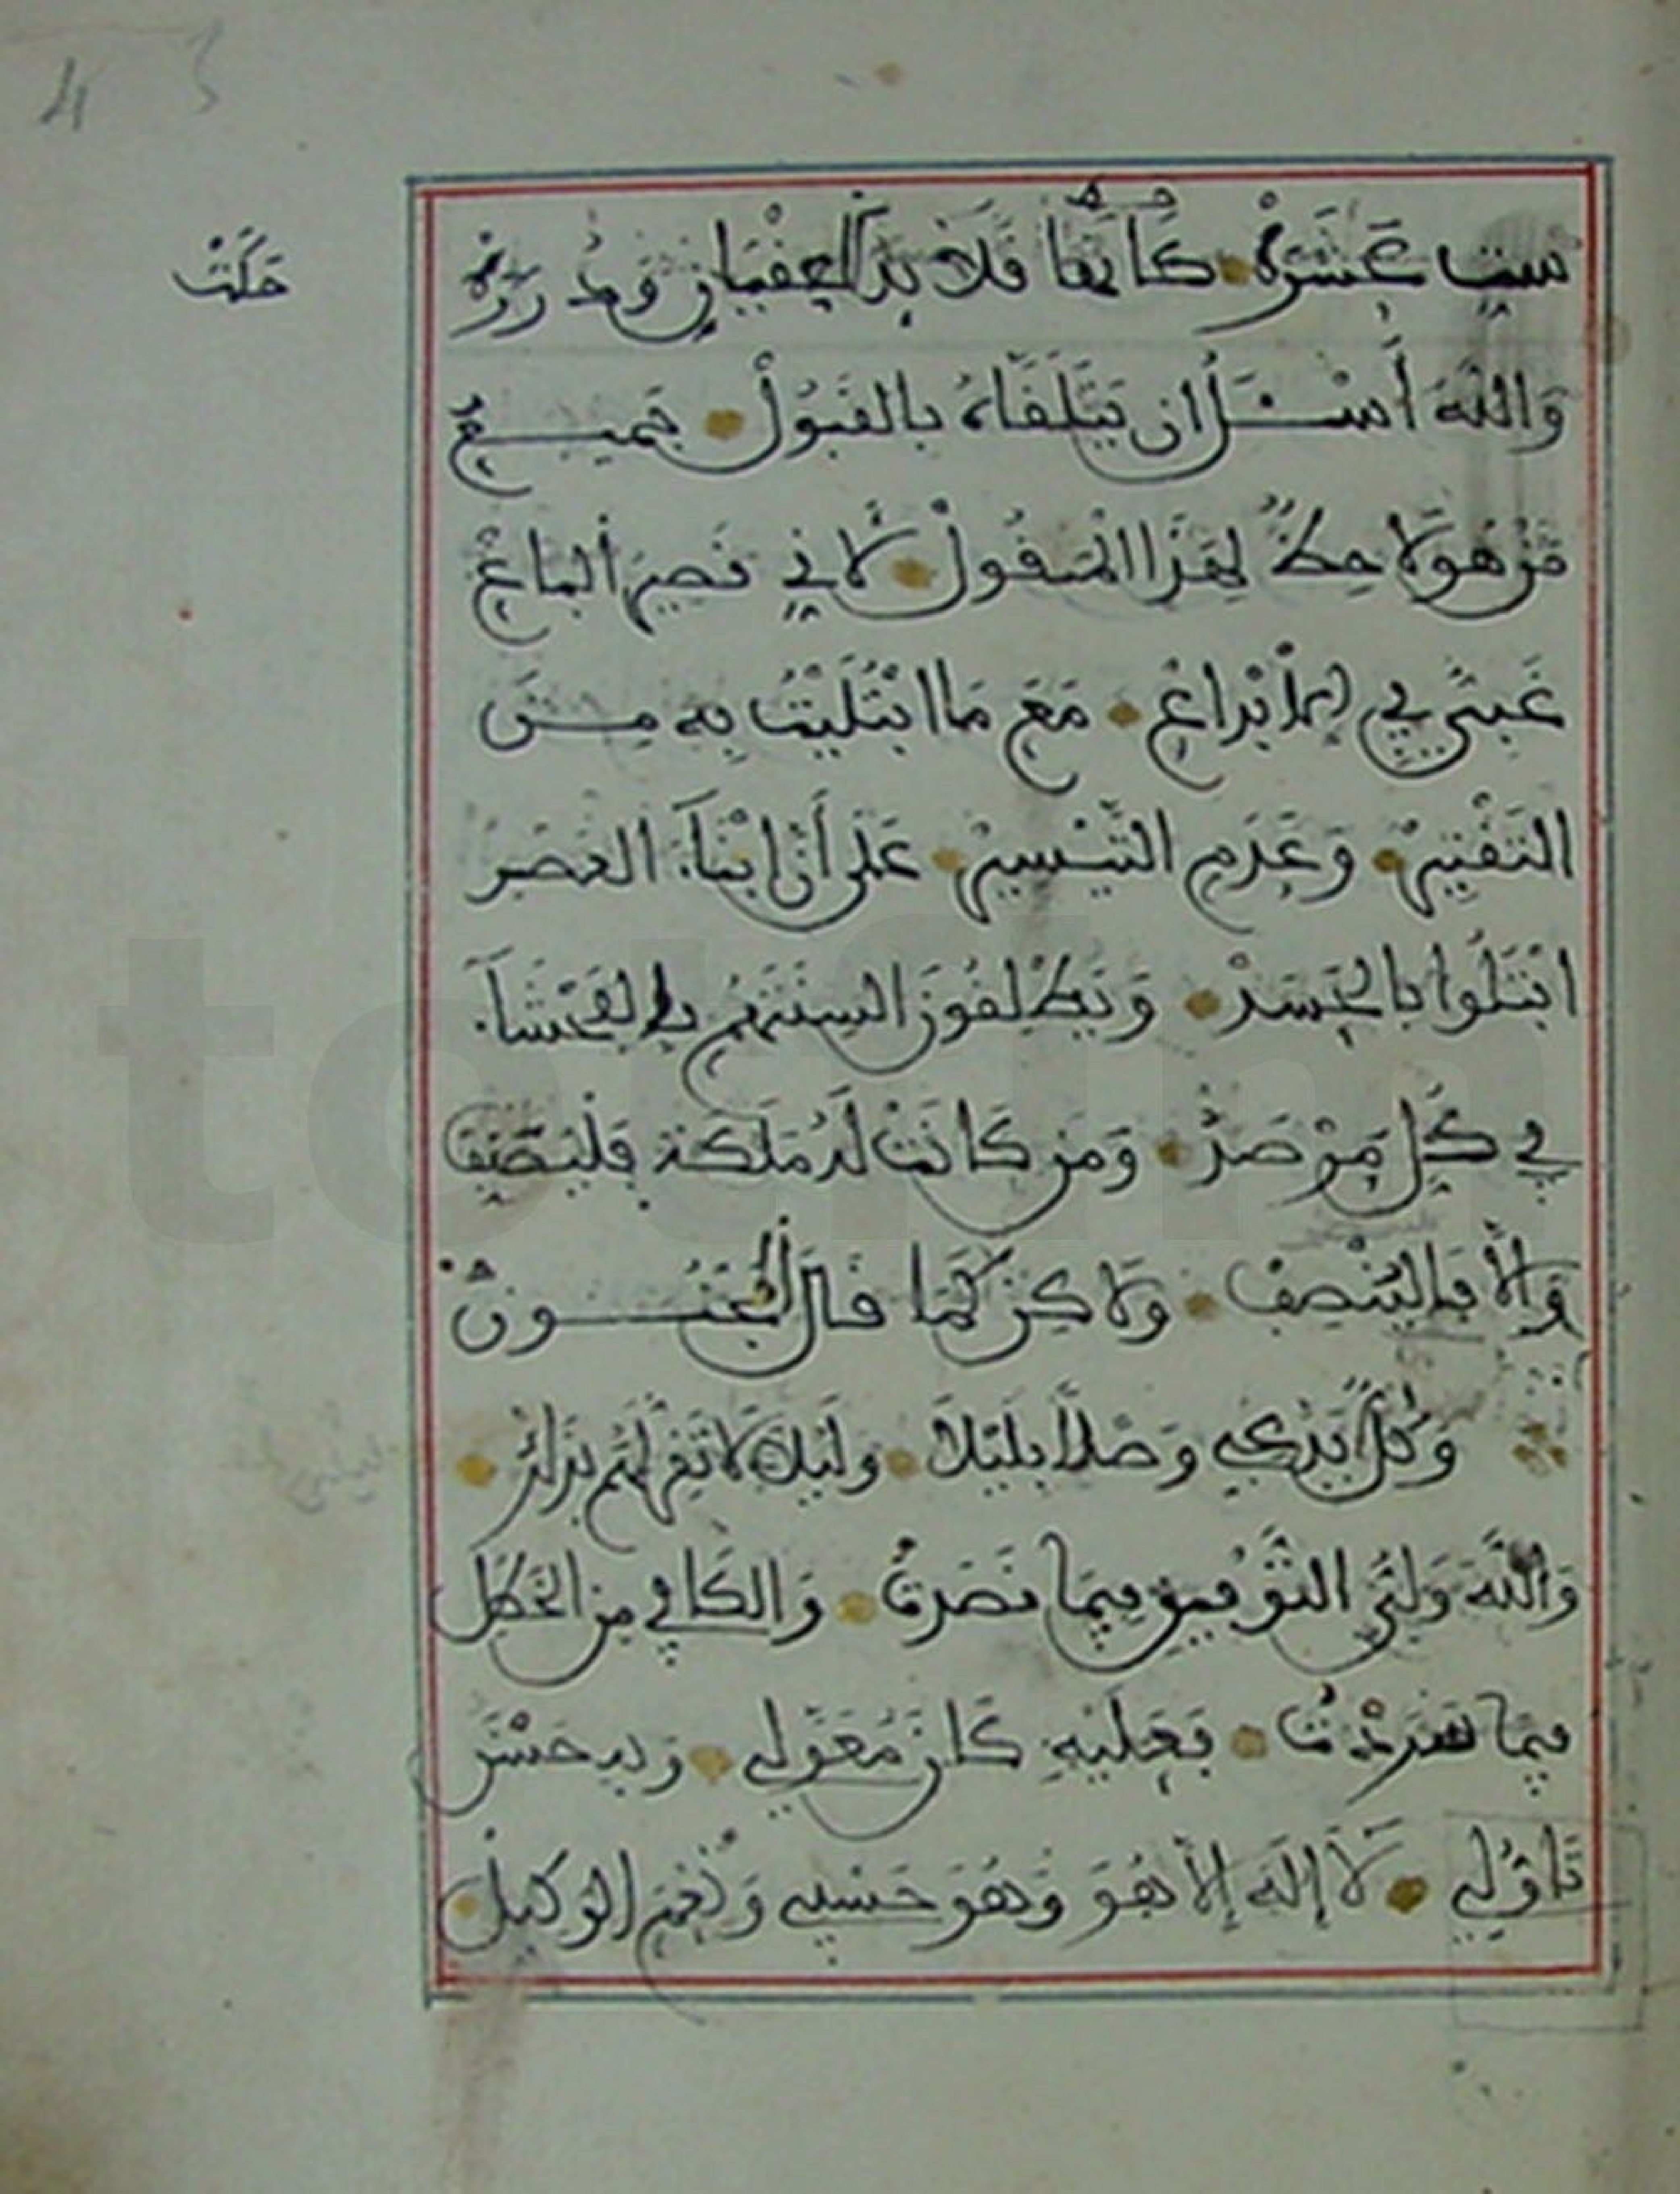 ست عشرة كأنها قلائد العقيان ودرره
حلت
والله أسئل ان يتلقاه بالقبول جميع
من هولا حظ لهذا المنقول لاني قصير الباع
غبي في الابداع مع ما ابتليت به من
التقتير وعدم التيسير على أن ابناء العصر
ابتلوا بالحسد ويطلقون السنتهم بالفحشاء
في كل مرصد ومن كانت له ملكة فليصنف
والا فالينصف ولاكن كما قال المجنون
وكل يدعي وصلا بليلا وليلا لا تقر لهم بذاك
والله ولي التوفيق فيما نصرت والكافي من الخطل
فيما سردت فعليه كان معولي وبه حسن
تاولي لا إله إلا هو وهو حسبي ونعم الوكيل